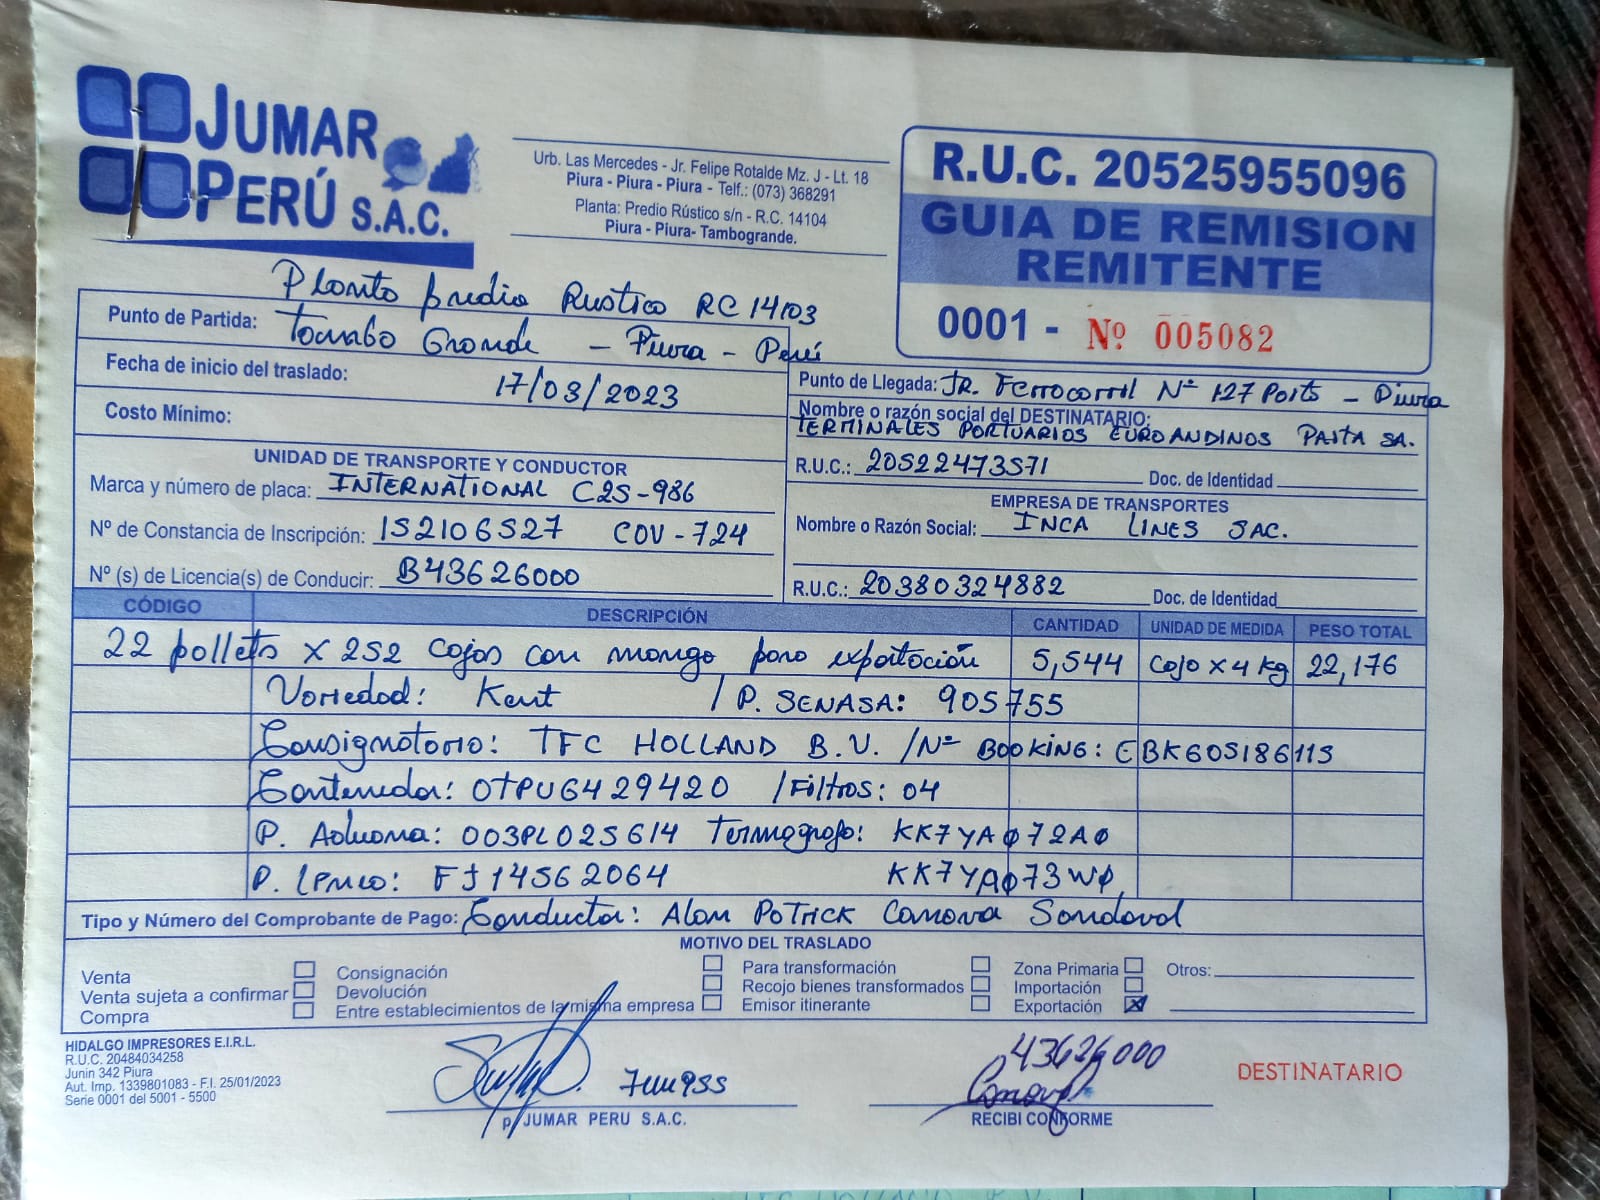 JUMAR
PERÚ S.A.C.
Urb. Las Mercedes - Jr. Felipe Rotalde Mz. J - Lt. 18
Piura - Piura - Piura - Telf.: (073) 368291
Planta: Predio Rústico s/n - R.C. 14104
Piura - Piura- Tambogrande.
R.U.C. 20525955096
GUIA DE REMISION
REMITENTE
0001 - Nº 005082
Planta predio Rustico RC 14103
Punto de Partida: Tambo Grande - Piura - Perú
Fecha de inicio del traslado: 17/03/2023
Costo Mínimo:
Punto de Llegada: JR. Ferrocarril Nº 127 Paita - Piura
Nombre o razón social del DESTINATARIO:
TERMINALES PORTUARIOS EUROANDINOS PAITA SA.
R.U.C.: 20522473571 Doc. de Identidad
UNIDAD DE TRANSPORTE Y CONDUCTOR
Marca y número de placa: INTERNATIONAL C2S-986
Nº de Constancia de Inscripción: 152106527 COV-724
Nº (s) de Licencia(s) de Conducir: B43626000
EMPRESA DE TRANSPORTES
Nombre o Razón Social: INCA LINES SAC.
R.U.C.: 20380324882 Doc. de Identidad
CÓDIGO DESCRIPCIÓN CANTIDAD UNIDAD DE MEDIDA PESO TOTAL
22 pallets x 252 cajas con mango para exportación 5,544 caja x 4 kg 22,176
Variedad: Kent / P. SENASA: 905755
Consignatario: TFC HOLLAND B.V. /Nº BOOKING: EBK60518611S
Contenedor: OTPU6429420 /Filtros: 04
P. Aduana: 003PL025614 Termografo: KK7YAØ72AØ
P. Linea: FJ14562064 KK7YAØ73WØ
Tipo y Número del Comprobante de Pago: Conductor: Alan Patrick Canova Sandoval
MOTIVO DEL TRASLADO
Venta
Venta sujeta a confirmar
Compra
Consignación
Devolución
Entre establecimientos de la misma empresa
Para transformación
Recojo bienes transformados
Emisor itinerante
Zona Primaria
Importación
Exportación X
Otros:
HIDALGO IMPRESORES E.I.R.L.
R.U.C. 20484034258
Junin 342 Piura
Aut. Imp. 1339801083 - F.I. 25/01/2023
Serie 0001 del 5001 - 5500
p. JUMAR PERU S.A.C.
43626000
Canova
RECIBI CONFORME
DESTINATARIO